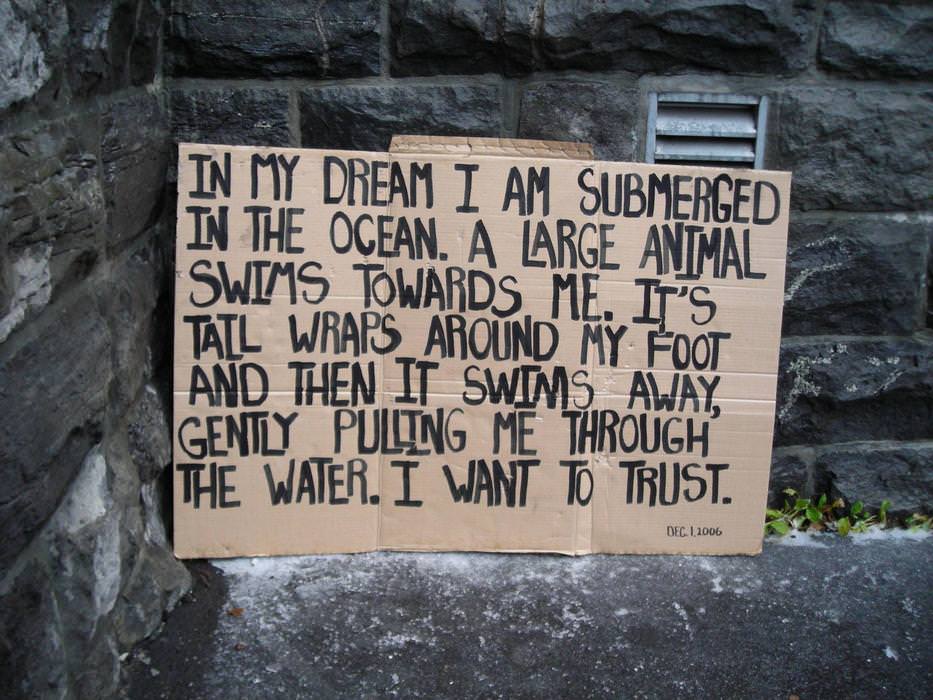 IN MY DREAM I AM SUBMERGED
IN THE OCEAN. A LARGE ANIMAL
SWIMS TOWARDS ME. IT'S
TAIL WRAPS AROUND MY FOOT
AND THEN IT SWIMS AWAY,
GENTLY PULLING ME THROUGH
THE WATER. I WANT TO TRUST.
DEC. 1, 2006